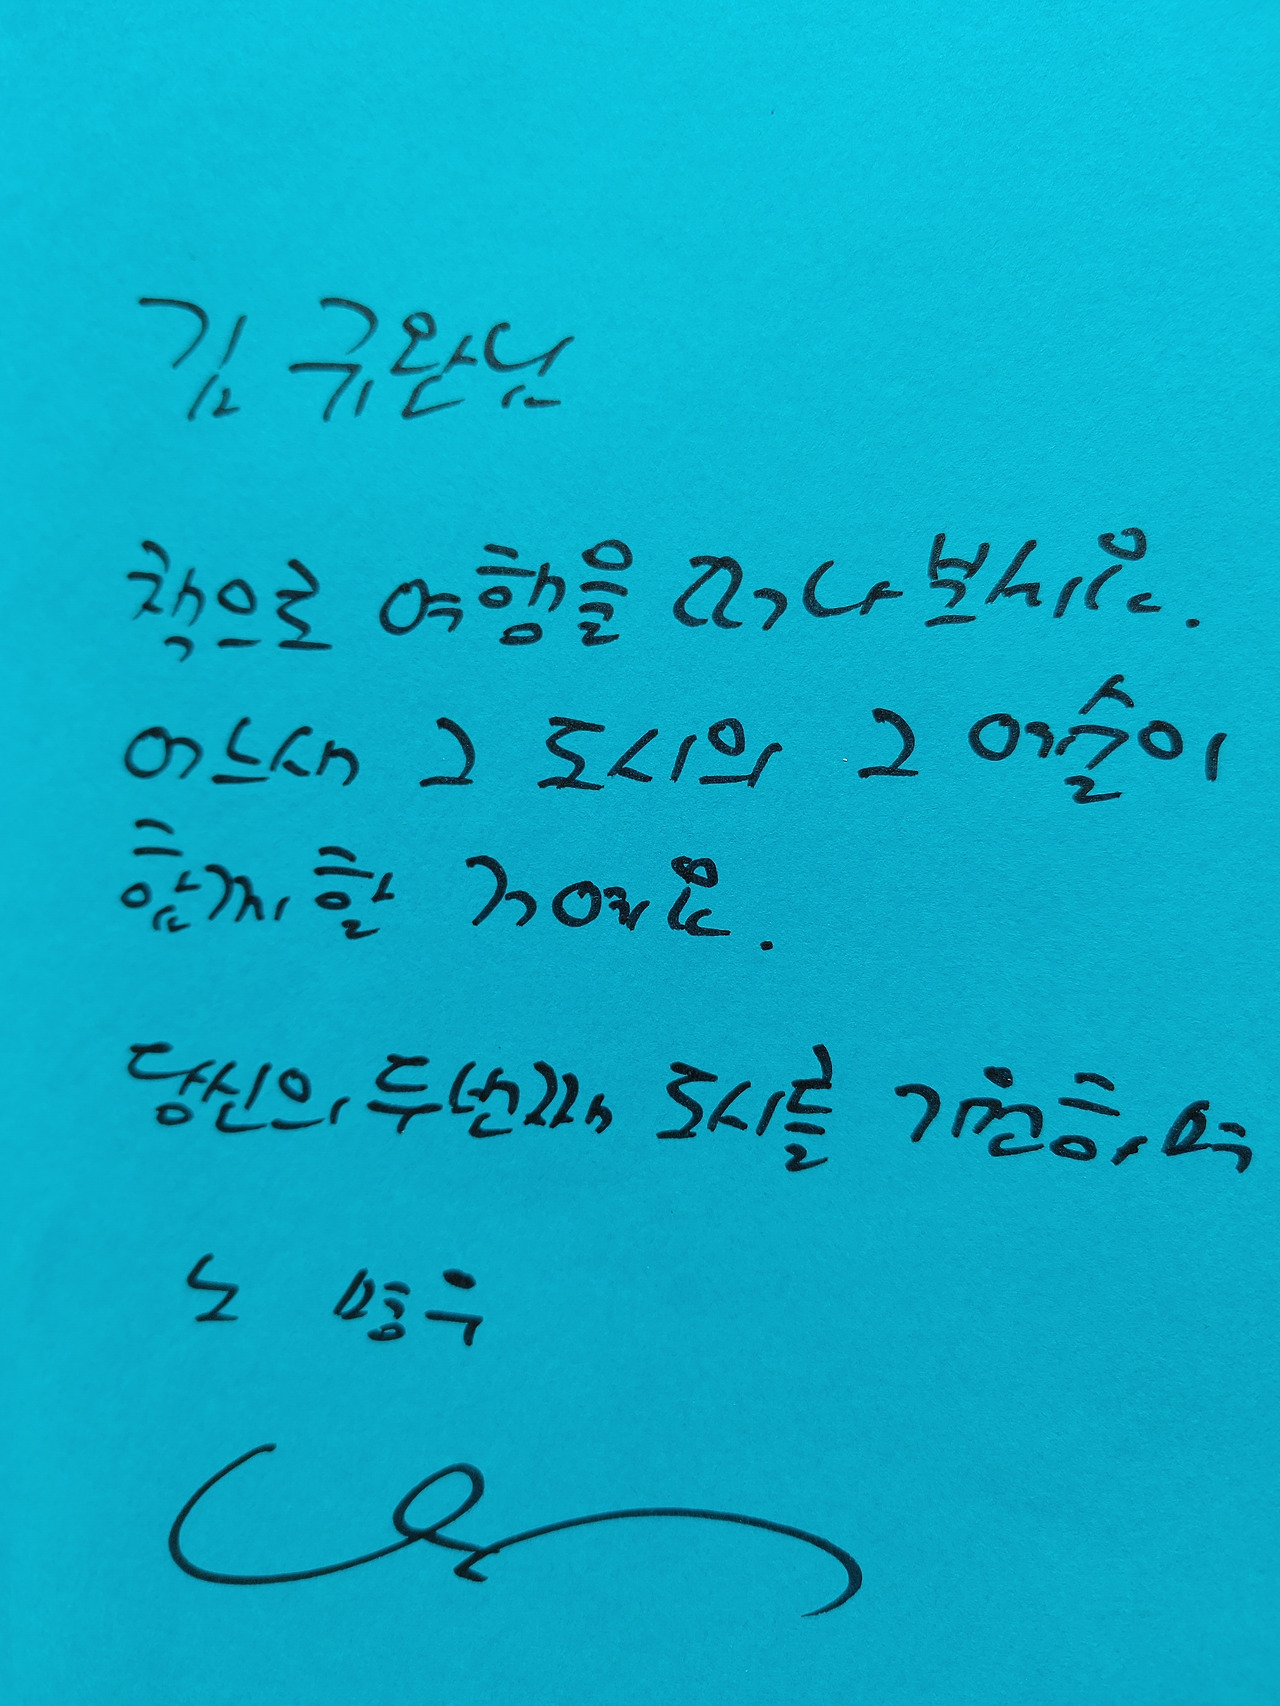 김 규완님
책으로 여행을 떠나 보세요.
어느새 그 도시의 그 예술이
함께 할 거예요.
당신의 두번째 도시를 기원하며
노 명우